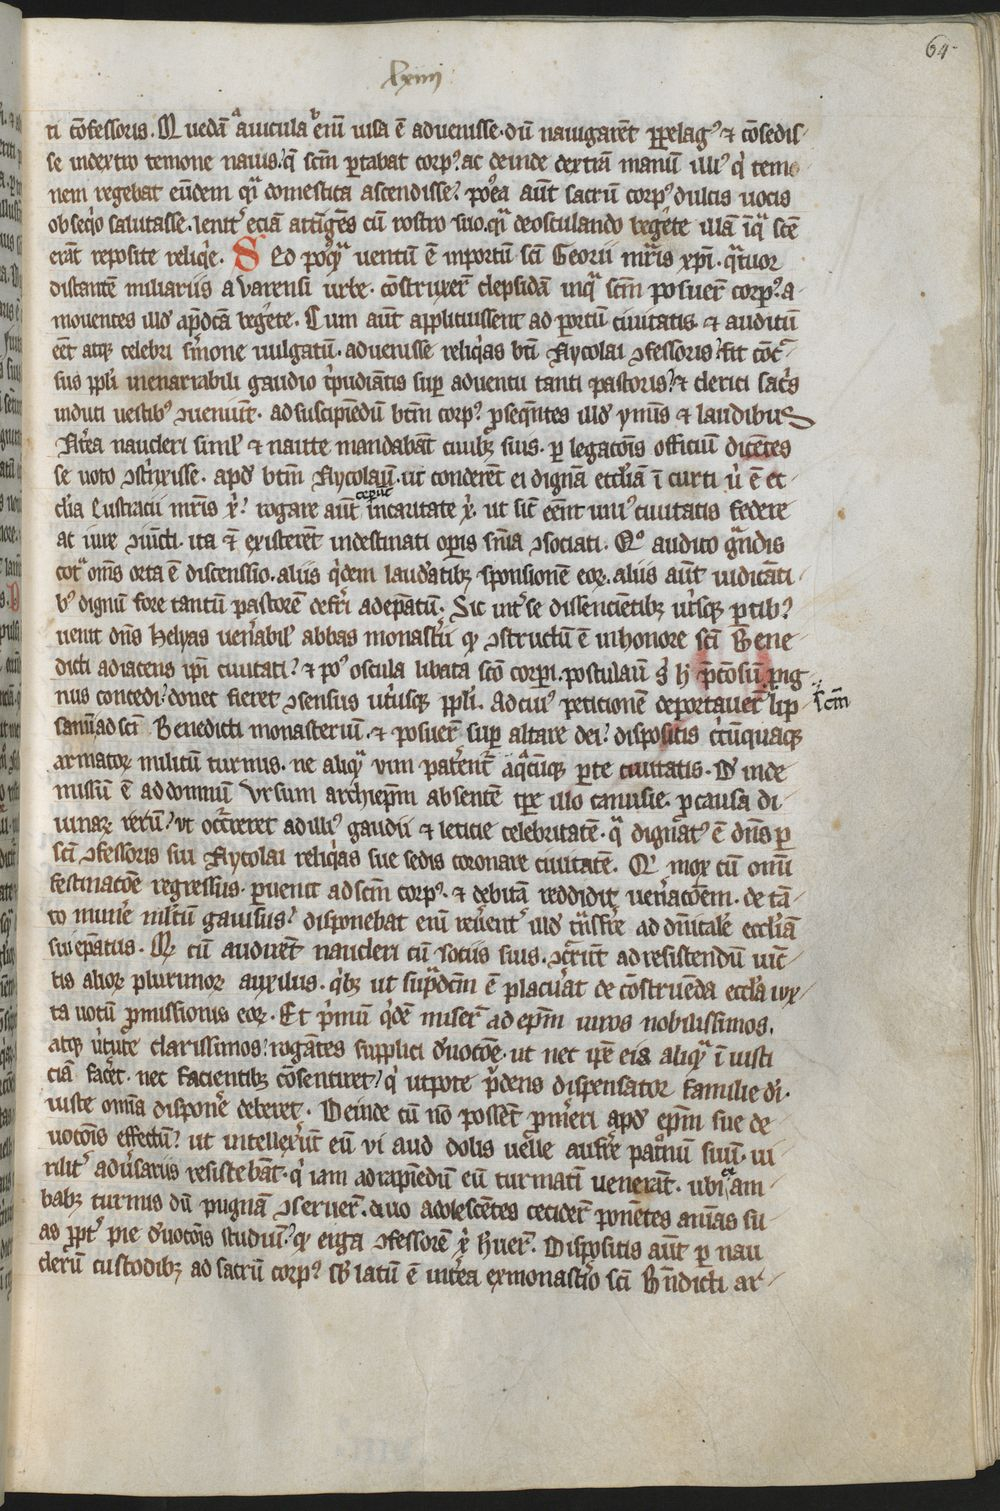 64
lxiiii
ti cōfessoris. Quedā auicula enī uisa ē aduenisse. dū nauigarēt ꝑ pelagꝰ ⁊ cōsedis-
se indextro temone nauis. q̄ scm̄ ꝑtabat corpꝰ. ac deinde dextrā manū illiꝰ q' temo-
nem regebat eūdem domestica ascendisse. aūt sacrū corpꝰ dulcis uocis
obseq'o salutasse. lenit' eciā attīgēs cū rostro suo. deosculando illā sc̄e
erāt reposite reliq'e. Sed ventū ē inportū sc̄i Georii mr̄is xp̄i. qͣtuor
distantē miliariis a varensi urbe. cōstruxer̄ clepsidā scm̄ posuer̄ corpꝰ. a-
mouentes illd' Cum aūt applicuissent ad portū ciuitatis. ⁊ auditū
eēt atqꝫ celebri s'mone uulgatū. aduenisse reliq'as bt̄i Nycolai ꝯfessoris. fit cōc'-
sus ppl'i inenarrabili gaudio t'pudiātis suꝑ aduentu tanti pastoris. ⁊ clerici sac's
induti uestibꝰ ꝯueniūt. ad suscipiēdū bt̄m corpꝰ. ꝓseq̄ntes illd' ymnis ⁊ laudibus
naucleri simil' ⁊ naute mandabāt ciuibꝫ suis. ꝑ legacōis officiū dicētes
se uoto ꝯst'nxisse. apd' bt̄m Nycolaū. ut conderēt ei dignā eccl'iā ī curti ē ec-
cl'ia Eustracii mr̄is x'. rogare aūt ceꝑūt incaritate x'. ut sic' eēnt uniꝰ ciuitatis federe
ac iure ꝯiūcti. ita ⁊ existerēt indestinati oꝑis ꝯsociati. Qº audito g̊ndis
orta ē discenssio. aliis q'dem laudātibꝫ sponsionē eoꝝ. aliis aūt iudicāti-
bꝰ dignū fore tantū pastorē ad ep̄atū. Sic int' se dissencientibꝫ ut'sqꝫ ꝑtibꝰ.
uenit dn̄s Helyas uen'abil' abbas monast'ii qꝫ ꝯstructū ē inhonore sc̄i Bene
dicti adiacens ip̄i ciuitati. ⁊ pºˢ oscula libata sc̄o corpi. postulauit pig-
nus concedi. donec fieret ꝯsensus ut'usqꝫ ppl'i. Ad cuiꝰ peticionē deportauer̄t lip-
scm̄
sanū ad sc̄i Benedicti monasteriū. ⁊ posuer̄ suꝑ altare dei. dispositis c'cūquaqꝫ
armatoꝝ militū turmis. ne aliq̄ uim pater̄nt' aq̄cūqꝫ ꝑte ciuitatis. D' inde
missū ē ad domnū Vrsum archiep̄m absentē tꝑe illo canusie. ꝓ causa di-
uinaꝝ rerū. ut occ'reret ad illiꝰ gaudii ⁊ leticie celebritatē. q̄ dignatꝰ ē dn̄s ꝑ
sc̄i ꝯfessoris sui Nycolai reliq'as sue sedis coronare ciuitatē. Qi mox cū omni
festinacōe regressus. ꝑuenit ad scm̄ corpꝰ. ⁊ debitā reddidit uen'acōem. de tā-
to mun'e nīstū gauisus. disponebat enī reu'ent' illd' t'nsfr̄e ad dn̄icalē eccl'iā
sui ep̄atus. Qꝫ cū audirēt naucleri cū sociis suis. ꝯc'rūt ad resistendū uic̄-
tis alioꝝ plurimoꝝ auxiliis. q'bꝫ ut sup̄dc̄m ē placu'at de cōstruēda eccl'a iux-
ta uotū ꝓmissionis eoꝝ. Et p'mū q'dē miser̄ ad ep̄m uiros nobilissimos,
atqꝫ u'tute clarissimos. rogātes supplici d'uocōe. ut nec ip̄e eis aliq̄ īiusti
ciā fac'et. nec facientibꝫ cōsentiret. q' utpote p̄dens dispensator familie dī.
iuste omnia dispon'e deberet. Deinde cū nō possēt ꝓm'eri apd' ep̄m sue de-
uocōis effectū. ut intellexer̄ūt eū vi aud dolis uelle aufr̄e pat'nū suū. ui-
rilit' adu'sariis resistebāt. q' iam ad rapiēdū eū turmati venerāt. ubi am-
babꝫ turmis dū pugnā ꝯseruer̄. duo adolescētes cecider̄ ponētes aīas su-
as ꝓpt' pie d'uocōis studiū. qꝫ erga ꝯfessorē x' h'uer̄. Dispositis aūt ꝑ nau
clerū custodibꝫ ad sacrū corpꝰ. sb'latū ē int'ea exmonast'io sc̄i Bn̄dicti ar-